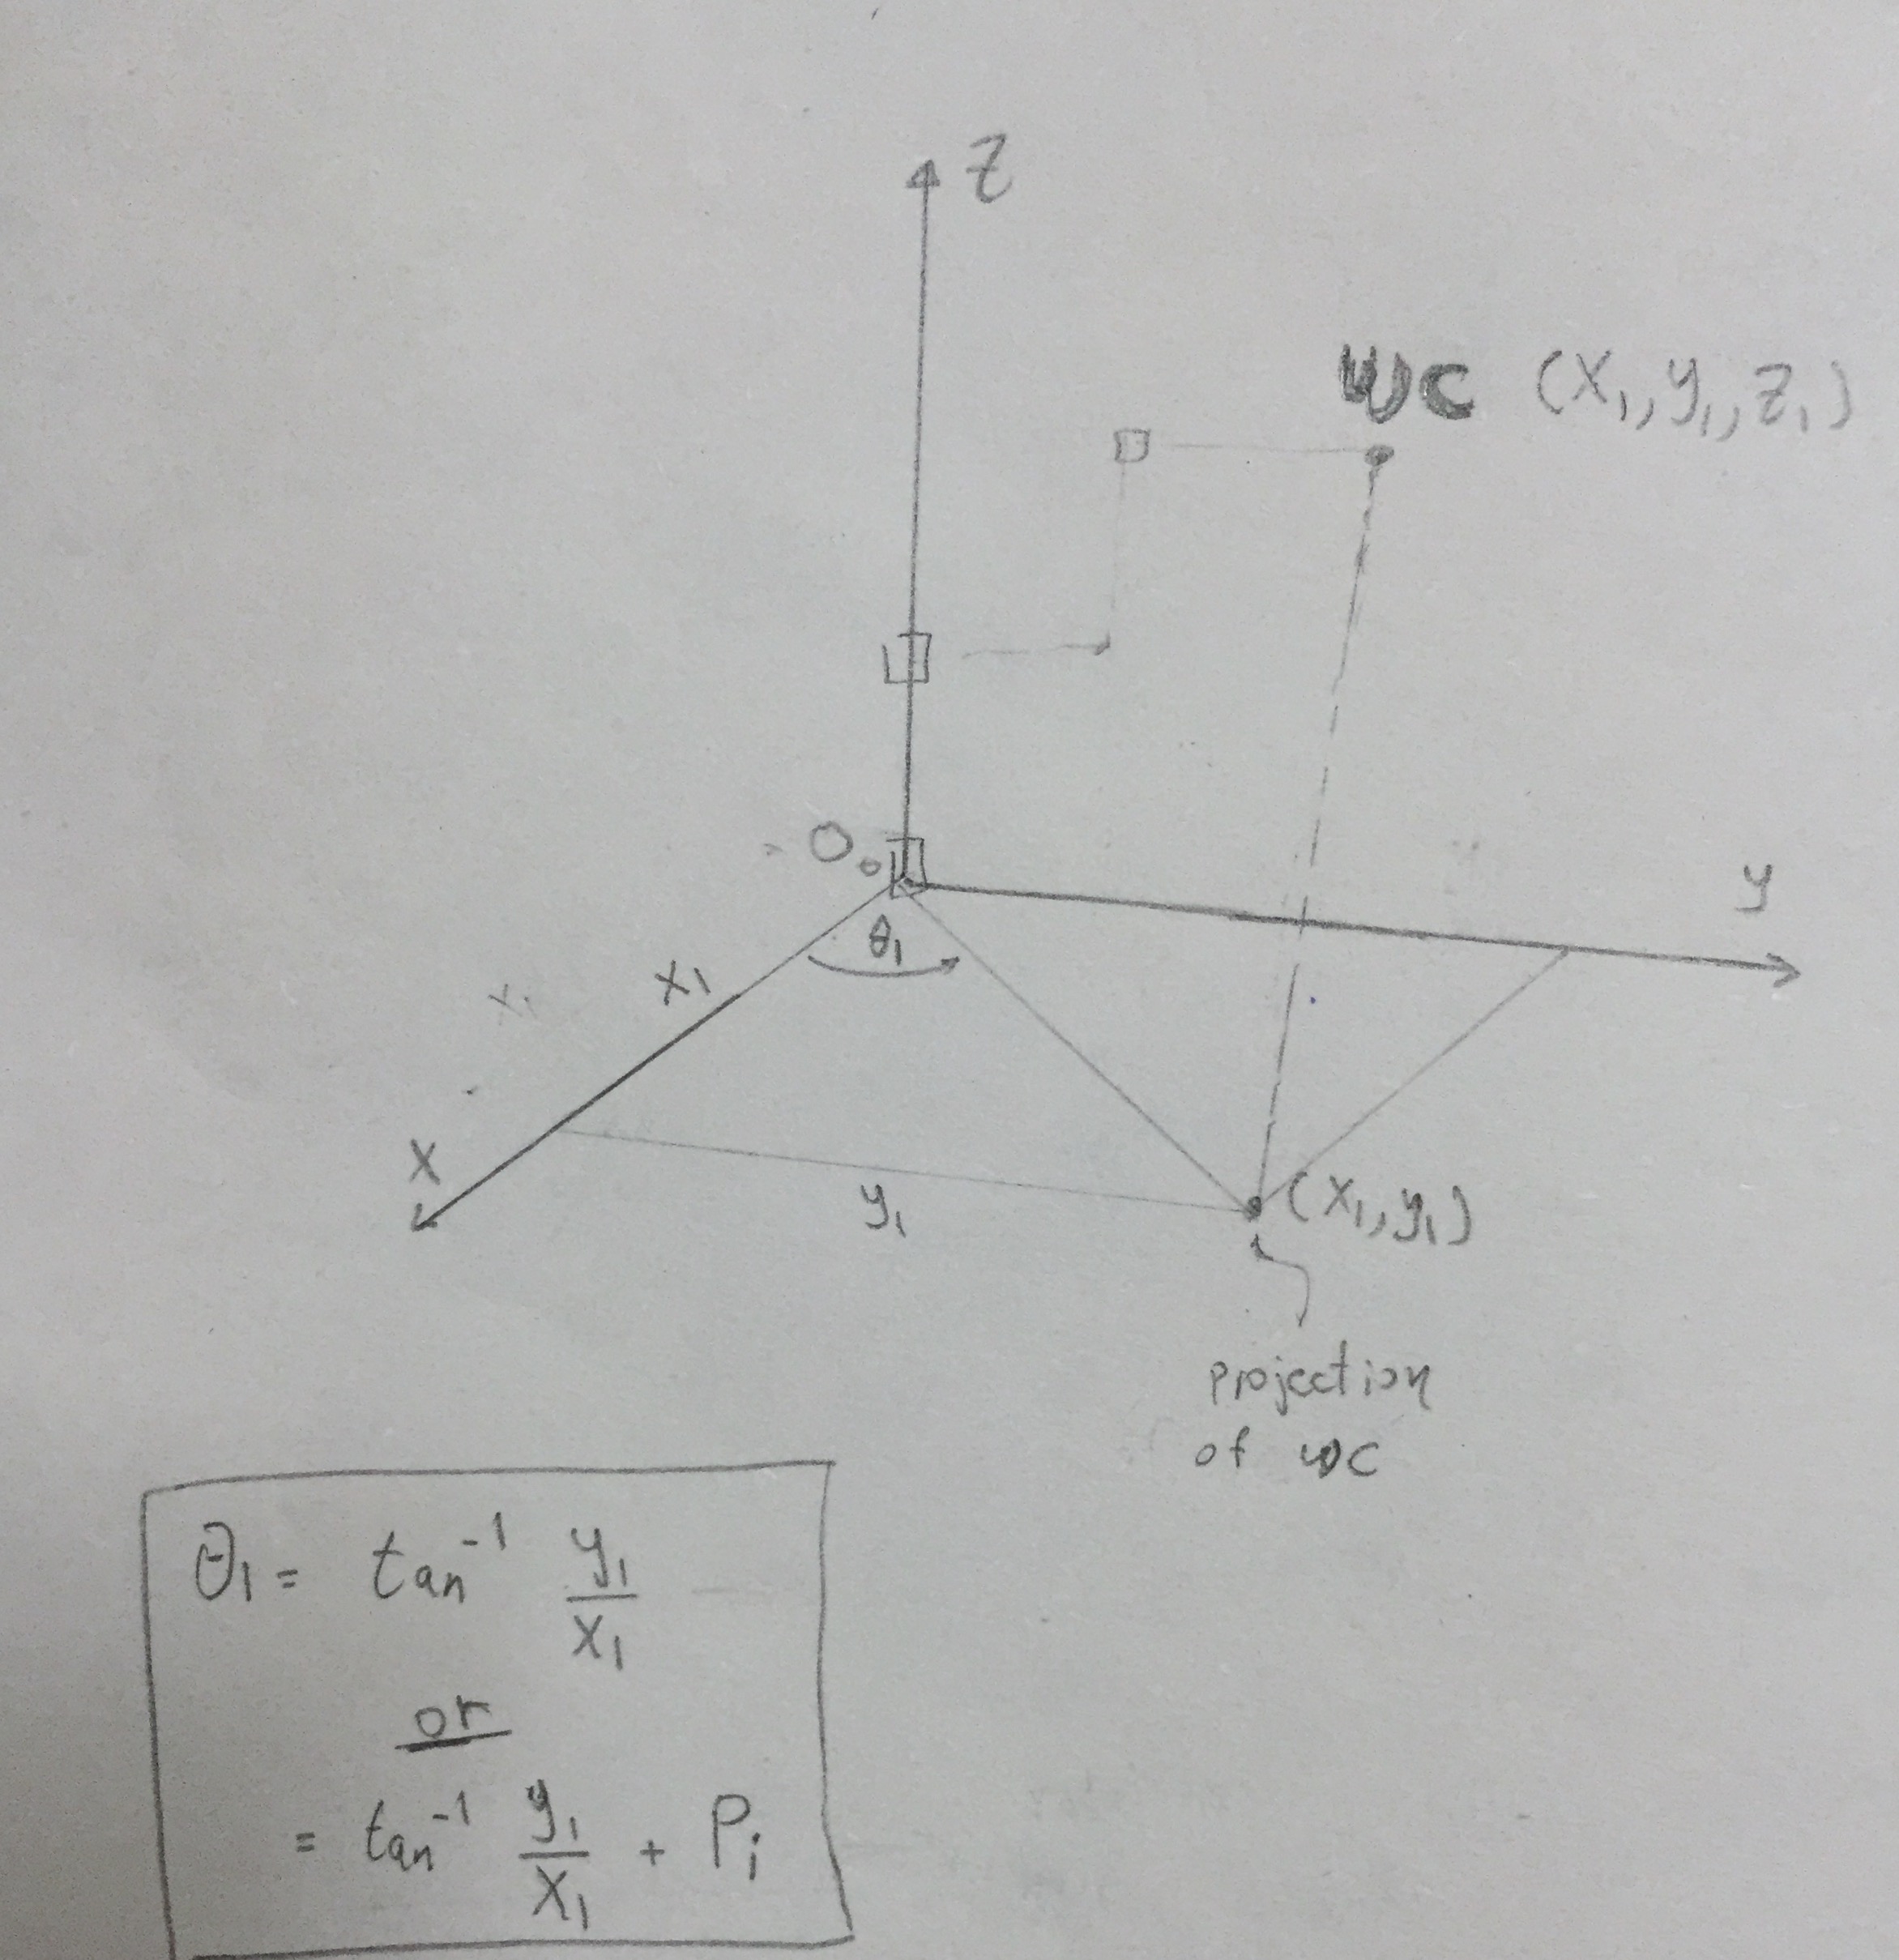 z
WC (x₁, y₁, z₁)
O₀
y
θ₁
x₁
x₁
x
y₁
(x₁, y₁)
projection
of WC
θ₁ = tan⁻¹ y₁/x₁
or
= tan⁻¹ y₁/x₁ + Pi